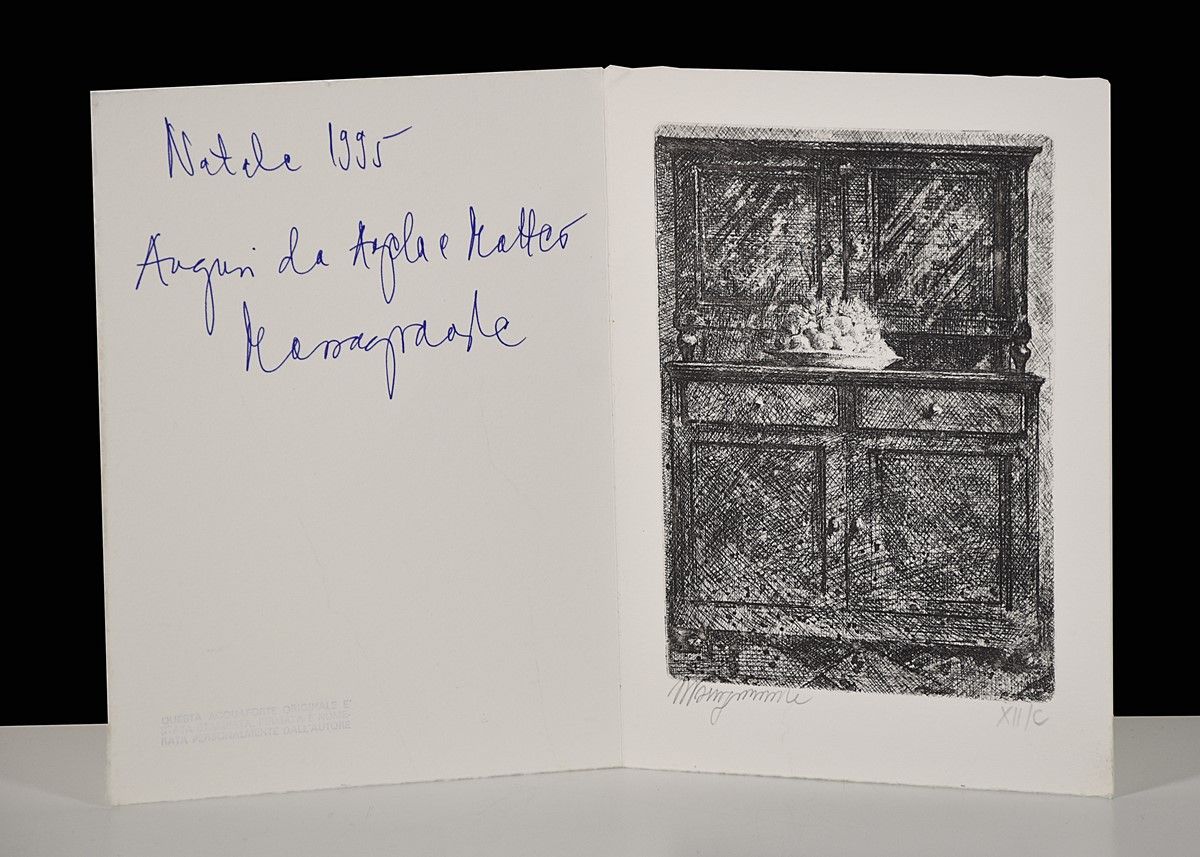 Natale 1995
Auguri da Angela e Matteo
Massagrande
QUESTA ACQUAFORTE ORIGINALE E'
STATA FIRMATA E NUME-
RATA PERSONALMENTE DALL'AUTORE
Massagrande
XII/C